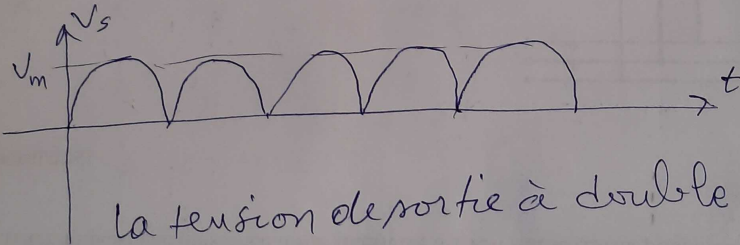 Vs
Vm
t
la tension de sortie à double